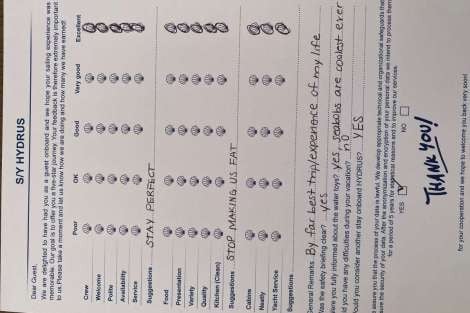 S/Y HYDRUS
Dear Guest,
We are delighted to have had you as a guest onboard and we hope your sailing experience was
memorable. Our goal is to offer you a five-star journey. Your feedback is therefore extremely important
to us. Please take a moment and let us know how we are doing and how many we have earned!
Poor OK Good Very good Excellent
Crew
Welcome
Polite
Availability
Service
Suggestions STAY PERFECT
Food
Presentation
Variety
Quality
Kitchen (Clean)
Suggestions STOP MAKING US EAT
Cabins
Neatly
Yacht Service
Suggestions
General Remarks: By far best trip/experience of my life
Was the safety briefing clear? yes
Were you fully informed about the water toys? yes, seabobs are coolest ever
Did you have any difficulties during your vacation? no
Would you consider another stay onboard HYDRUS? YES
assure you that the process of your data is lawful. We develop appropriate technical and organizational safeguards that
ensure the security of your data. After the anonymization and encryption of your personal data we intend to process them
for a period of 5 years for statistical reasons and to improve our services.
YES NO
THANK YOU!
for your cooperation and we hope to welcome you back very soon!